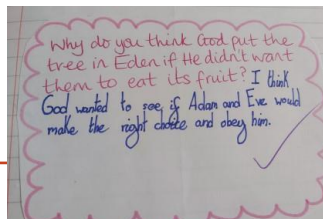 Why do you think God put the
tree in Eden if He didn't want
them to eat its fruit? I think
God wanted to see if Adam and Eve would
make the right choice and obey him.